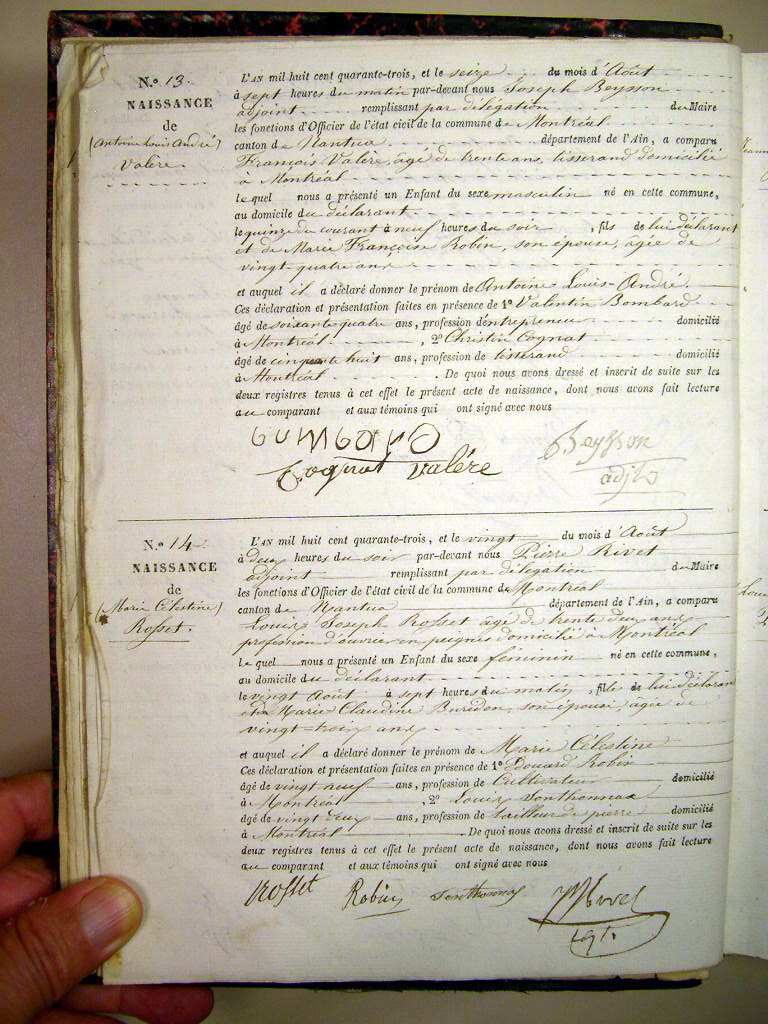 N.º 13.
NAISSANCE
de
(Antoine Louis André)
Valère.
L'AN mil huit cent quarante-trois, et le seize du mois d'Août
à sept heures du matin par-devant nous Joseph Beysson
adjoint remplissant par délégation du Maire
les fonctions d'Officier de l'état civil de la commune de Montréal
canton de Nantua département de l'Ain, a comparu
François Valère, âgé de trente ans, tisserand domicilié
à Montréal
le quel nous a présenté un Enfant du sexe masculin né en cette commune,
au domicile du déclarant
le quinze du courant à neuf heures du soir, fils de lui déclarant
et de Marie Françoise Robin, son épouse, âgée de
vingt quatre ans
et auquel il a déclaré donner le prénom de Antoine Louis-André.
Ces déclaration et présentation faites en présence de 1º Valentin Bombard
âgé de soixante quatre ans, profession d'entrepreneur domicilié
à Montréal, 2º Christin Cognat
âgé de cinquante huit ans, profession de tisserand domicilié
à Montréal. De quoi nous avons dressé et inscrit de suite sur les
deux registres tenus à cet effet le présent acte de naissance, dont nous avons fait lecture
au comparant et aux témoins qui ont signé avec nous
bumbard Beysson
Cognat Valére adjt
N.º 14.
NAISSANCE
de
(Marie Célestine)
Rosset.
L'AN mil huit cent quarante-trois, et le vingt du mois d'Août
à deux heures du soir par-devant nous Pierre Rivet
adjoint remplissant par délégation du Maire
les fonctions d'Officier de l'état civil de la commune de Montréal
canton de Nantua département de l'Ain, a comparu
Louis Joseph Rosset âgé de trente deux ans
profession d'ouvrier en peignes domicilié à Montréal
le quel nous a présenté un Enfant du sexe féminin né en cette commune,
au domicile du déclarant
le vingt Août à sept heures du matin, fille de lui déclarant
et de Marie Claudine Burdon, son épouse âgée de
vingt-trois ans
et auquel il a déclaré donner le prénom de Marie Célestine
Ces déclaration et présentation faites en présence de 1º Edouard Robin
âgé de vingt neuf ans, profession de Cultivateur domicilié
à Montréal, 2º Louis Sonthonnax
âgé de vingt deux ans, profession de tailleur de pierre domicilié
à Montréal. De quoi nous avons dressé et inscrit de suite sur les
deux registres tenus à cet effet le présent acte de naissance, dont nous avons fait lecture
au comparant et aux témoins qui ont signé avec nous
Rosset Robin Sonthonnax Rivet